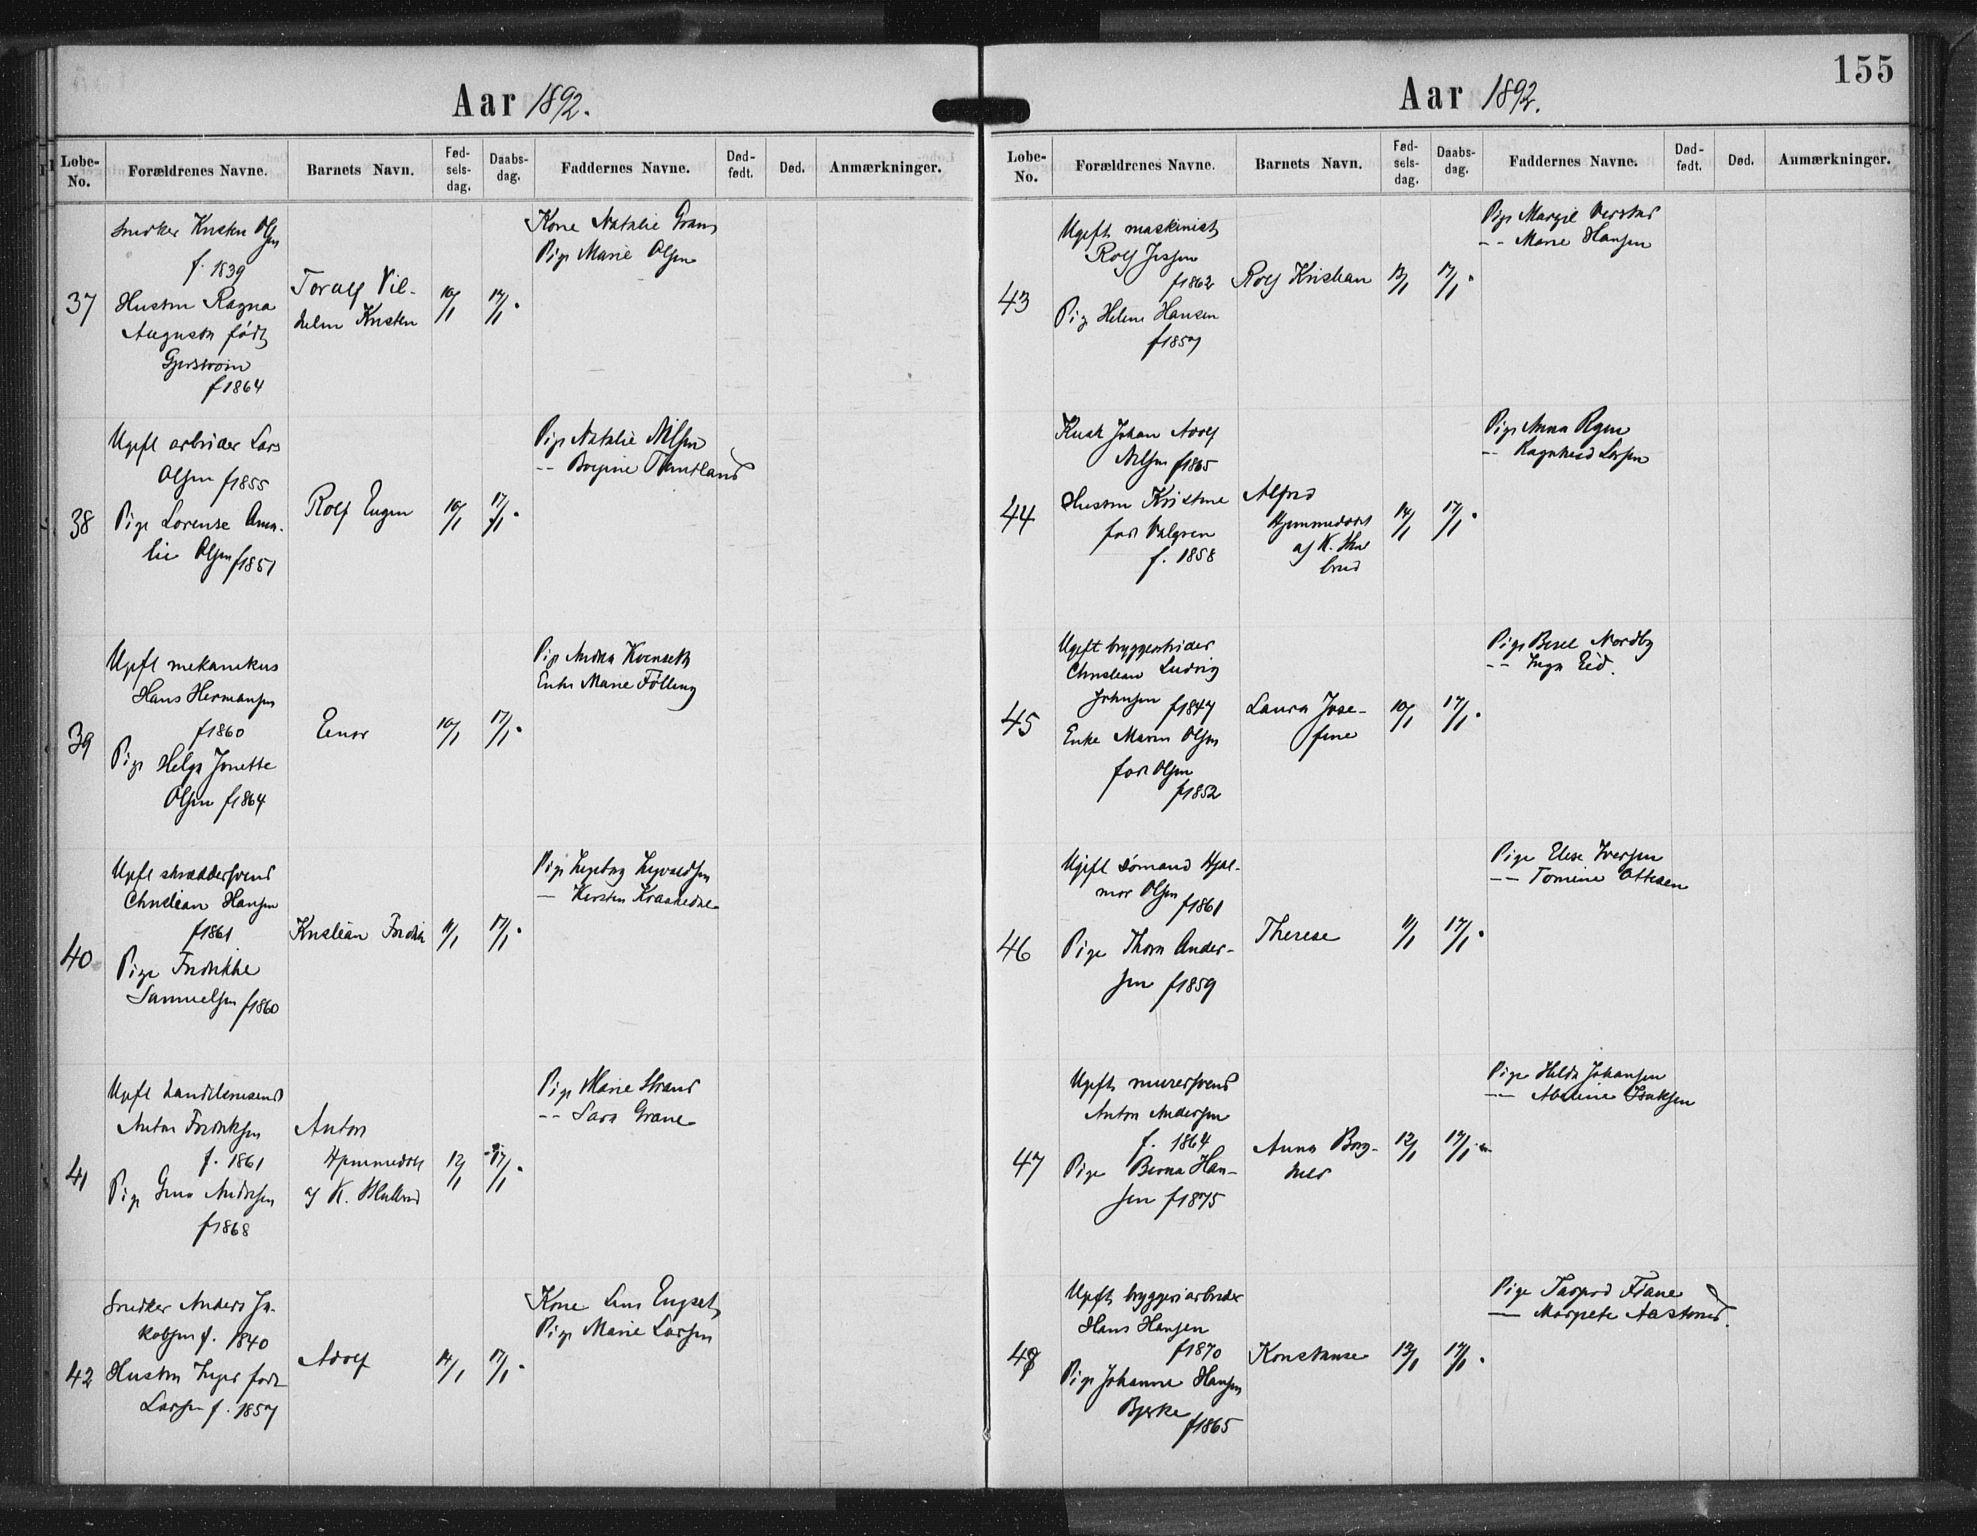 155
Aar 1892.
Løbe-No. Forældrenes Navne. Barnets Navn. Fød-sels-dag. Daabs-dag. Faddernes Navne. Død-født. Død. Anmærkninger.
37
Snedker Kristen Olsen
f. 1839
Hustru Ragna
Augusta født
f 1864
Toralf Vil-
helm Kristen
10/1
17/1.
Kone Natalie Gran
Pige Marie Olsen
38
Ugift arbeider Lars
Olsen f 1855
Pige Lorense Ama-
lie Olsen f 1851
Rolf Eugen
10/1
17/1.
Pige Natalie Nilsen
-- Borgine
39
Ugift mekanikus
Hans Hermansen
f 1860
Pige Helga Jonette
Olsen f 1864
Einar
10/1
17/1.
Pige Andrea
Enke Marie Fölling
40
Ugift skræddersvend
Christian Hansen
f 1861
Pige Fredrikke
Samuelsen f 1860
Kristian Fredrik
11/1
17/1.
Pige Ingeborg Ingvaldsen
— Kirsten
41
Ugift
Anton Fredriksen
f. 1861
Pige Gina Andersen
f 1868
Anton
Hjemmedøbt
af K.
12/1
17/1.
Pige Marie Strand
-- Sara Grane
42
Snedker Anders Ja-
kobsen f. 1840
Hustru Inger født
Larsen f. 1857
Adolf
14/1
17/1.
Kone Lina Engset
Pige Marie Larsen
Aar 1892.
Løbe-No. Forældrenes Navne. Barnets Navn. Fød-sels-dag. Daabs-dag. Faddernes Navne. Død-født. Død. Anmærkninger.
43
Ugift maskinist
Rolf
f 1862
Pige Helene Hansen
f 1857
Rolf Kristian
13/1
17/1.
Pige Margit
-- Marie Hansen
44
Kusk Johan Adolf
Nilsen f 1865
Hustru Kristine
født Valgren
f. 1858
Alfred
Hjemmedøbt
af K.
14/1
17/1.
Pige Anna
-- Ragnhild Larsen
45
Ugift bryggearbeider
Christian Ludvig
Johnsen f 1847
Enke Maren Olsen
født Olsen
f 1852
Laura Jose-
fine
10/1
17/1.
Pige Nordby
-- Inga Eid.
46
Ugift sömand Hjal-
mar Olsen f 1861
Pige Thora Ander-
sen f 1859
Therese
11/1
17/1.
Pige Elise Iversen
-- Tomine Ottesen
47
Ugift murersvend
Anton Andersen
f. 1864
Pige Han-
sen f 1875
Anna Borg-
hild
12/1
17/1.
Pige Hilda Johansen
-- Isaksen
48
Ugift bryggeriarbeider
Hans Hansen
f 1870
Pige Johanne Hansen
Bjerke
f 1865
Konstanse
13/1
17/1.
Pige
— Margrete